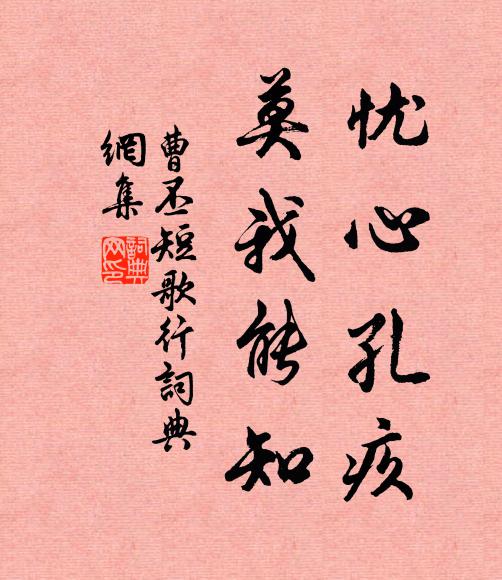 忧心孔疚
莫我能知
曹丕短歌行詞典
網集
詞典
网印